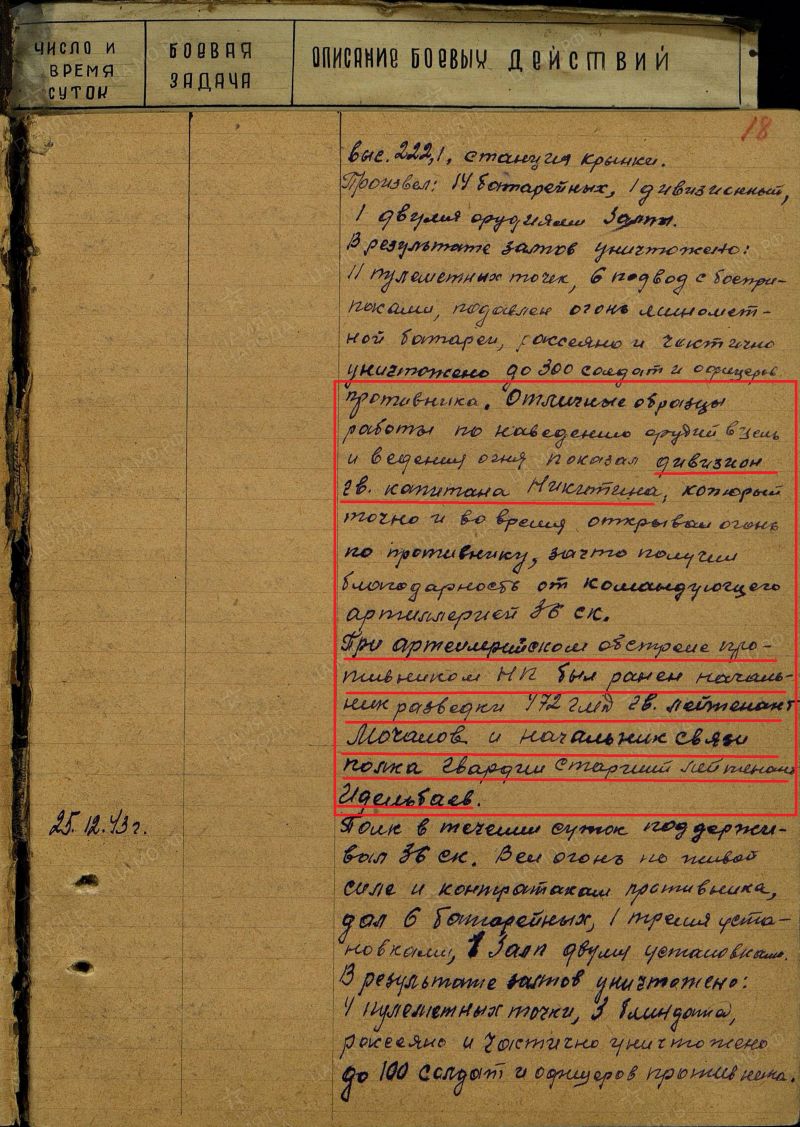 ЧИСЛО И
ВРЕМЯ
СУТОК
БОЕВАЯ
ЗАДАЧА
ОПИСАНИЕ БОЕВЫХ ДЕЙСТВИЙ
18
выс. 222,1, станция крынки.
Произвел: 14 батарейных, 1 дивизионный,
1 двумя орудиями залпы.
В результате залпов уничтожено:
11 пулеметных точек, 6 подвод с боепри-
пасами, подавлен огонь миномет-
ной батареи, рассеяно и частично
уничтожено до 300 солдат и офицеров
противника. Отличные образцы
работы по наведению орудий в цель
и ведения огня показал дивизион
гв. капитана Никитина, который
точно и во время открывал огонь
по противнику, за что получил
благодарность от командующего
артиллерией 36 ск.
При артиллерийском обстреле про-
тивником НП был ранен началь-
ник разведки 472 гмд гв. лейтенант
Мочалов и начальник связи
полка гвардии старший лейтенант
Идельбаев.
25.12.43г.
Полк в течении суток поддержи-
вал 36 ск. Вел огонь по живой
силе и контратакам противника,
дал 6 батарейных, 1 тремя уста-
новками, 1 залп двумя установками.
В результате залпов уничтожено:
4 пулеметных точки, 3 блиндажа,
рассеяно и частично уничтожено
до 100 солдат и офицеров противника.